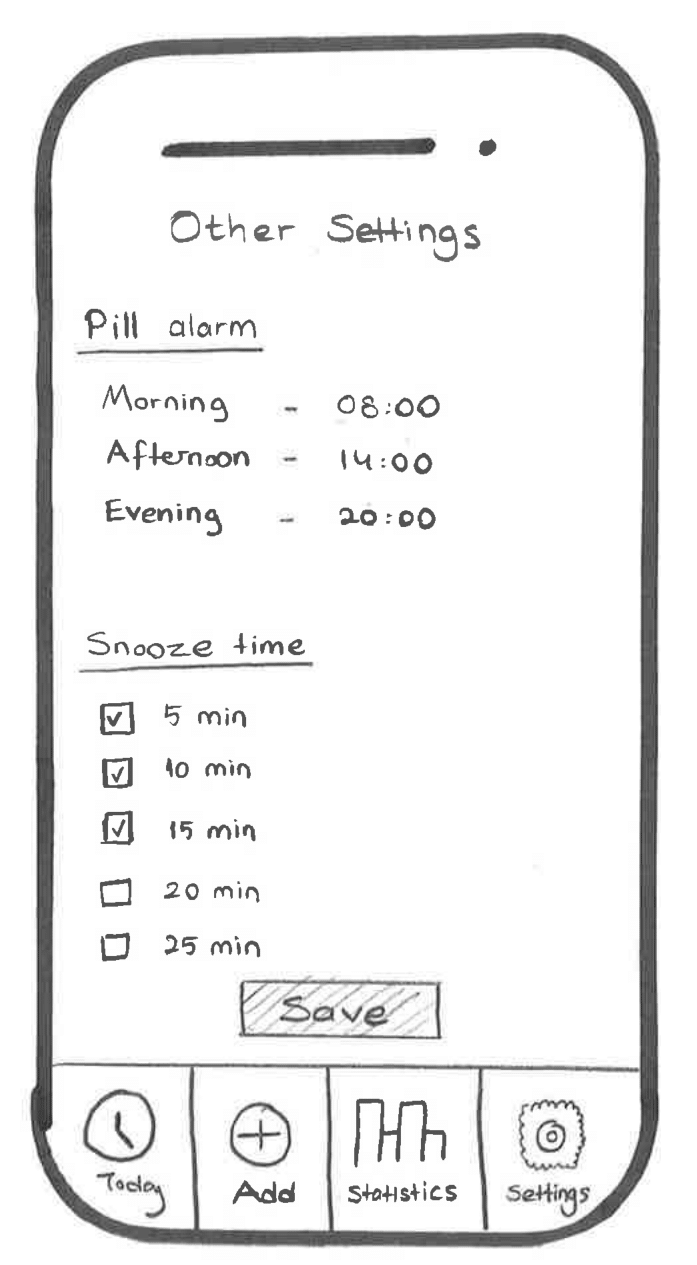 Other Settings
Pill alarm
Morning - 08:00
Afternoon - 14:00
Evening - 20:00
Snooze time
5 min
10 min
15 min
20 min
25 min
Save
Today
Add
Statistics
Settings